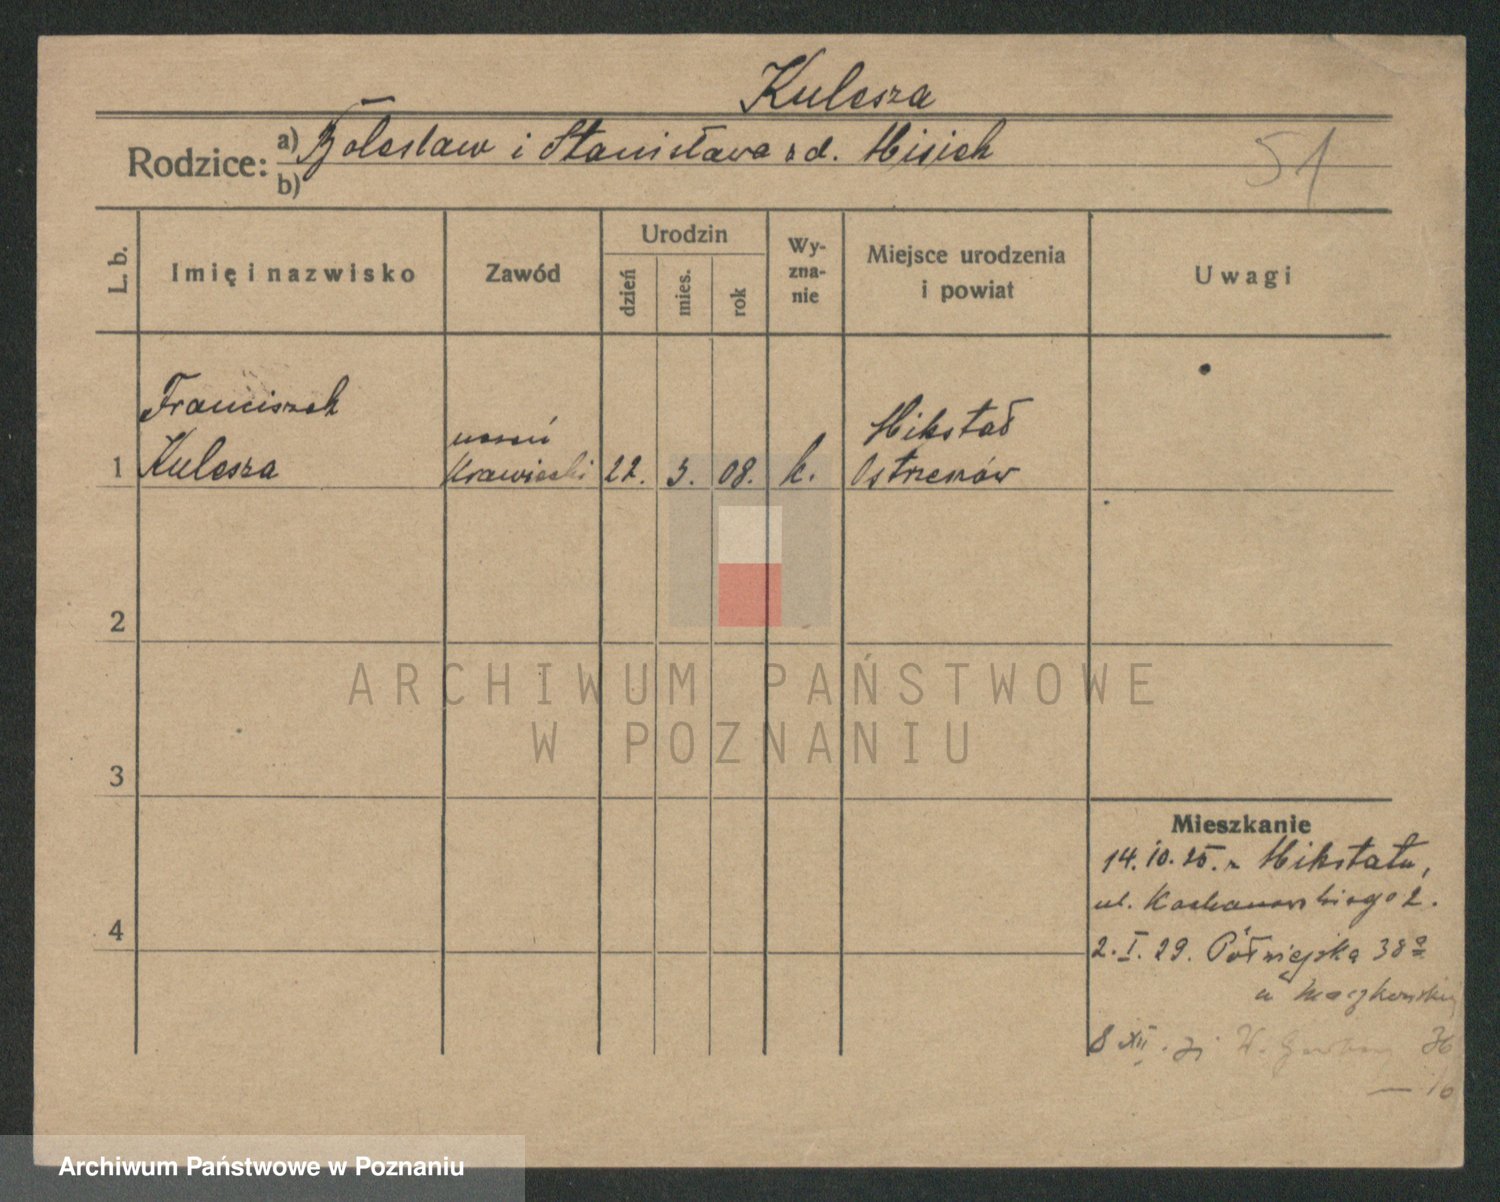 Kulesza
Rodzice: a) Bolesław i Stanisława z d. Misiek
b)
51
L. b.
Imię i nazwisko
Zawód
Urodzin
dzień
mies.
rok
Wy-
zna-
nie
Miejsce urodzenia
i powiat
Uwagi
Franciszek
1 Kulesza
uczeń
krawiecki
22. 3. 08. k.
Mikstat
Ostrzeszów
2
3
4
ARCHIWUM PAŃSTWOWE
W POZNANIU
Mieszkanie
14.10.25. z Mikstatu,
ul. Kochanowskiego 2.
2. I. 29. Półwiejska 38a
u
8 XII. 31 W. Garbary 36
Archiwum Państwowe w Poznaniu